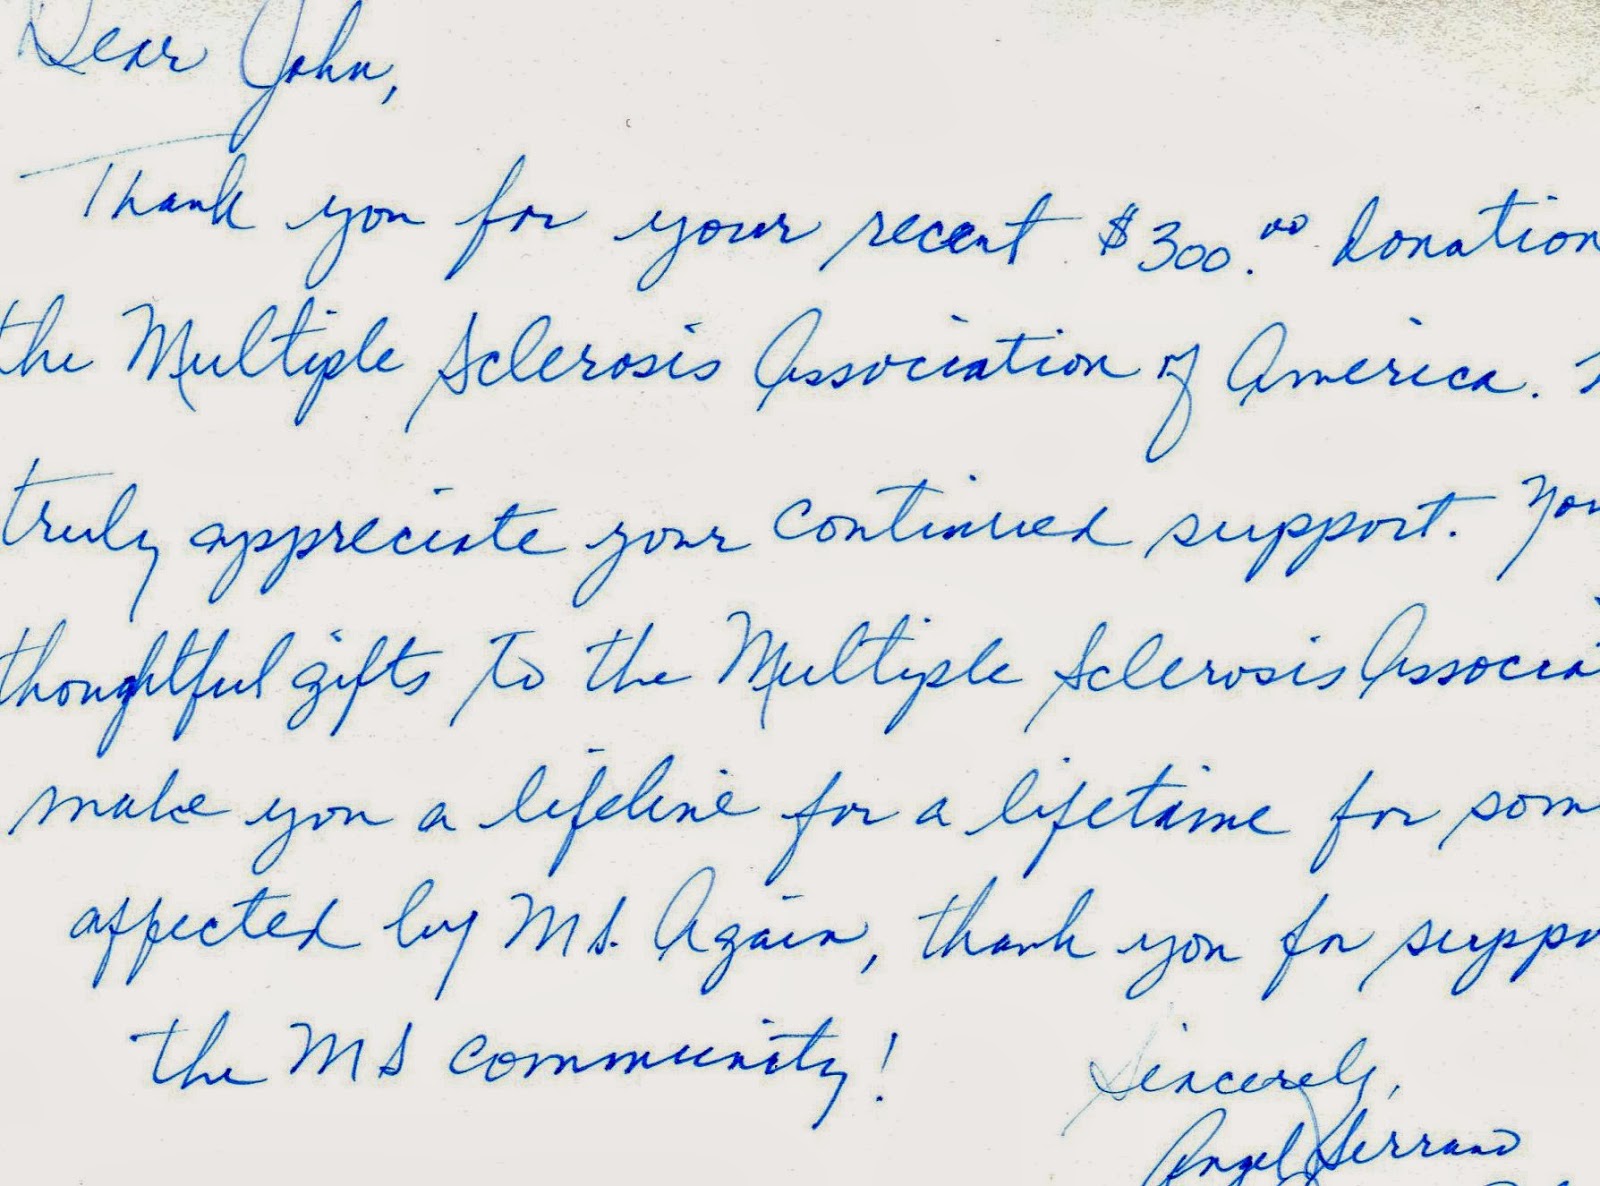 Dear John,
Thank you for your recent $300.00 donation
the Multiple Sclerosis Association of America.
truly appreciate your continued support. You
thoughtful gifts to the Multiple Sclerosis Associa
make you a lifeline for a lifetime for som
affected by MS. Again, thank you for suppo
the MS community!
Sincerely,
Angel Serrano